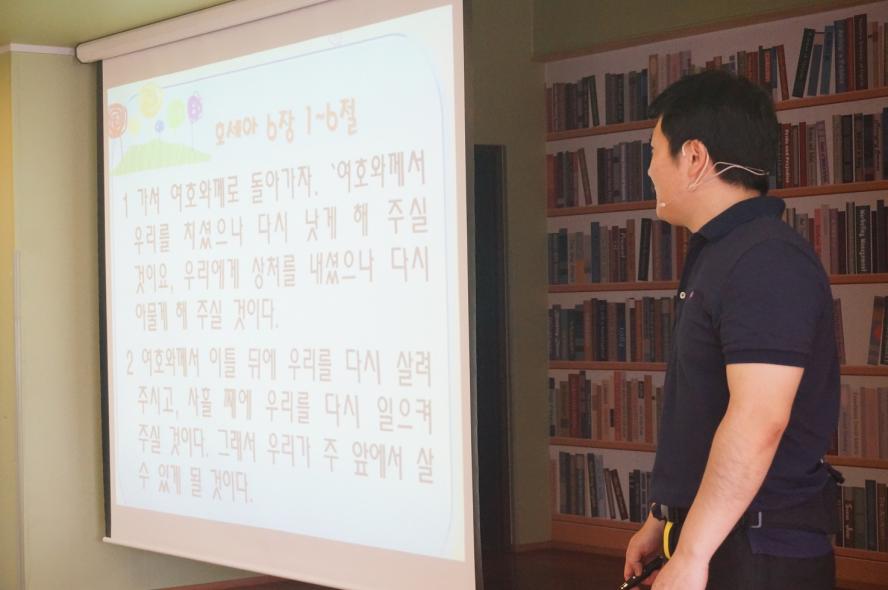 호세아 6장 1~6절
1 가서 여호와께로 돌아가자. '여호와께서
우리를 치셨으나 다시 낫게 해 주실
것이요, 우리에게 상처를 내셨으나 다시
아물게 해 주실 것이다.
2 여호와께서 이틀 뒤에 우리를 다시 살려
주시고, 사흘 째에 우리를 다시 일으켜
주실 것이다. 그래서 우리가 주 앞에서 살
수 있게 될 것이다.